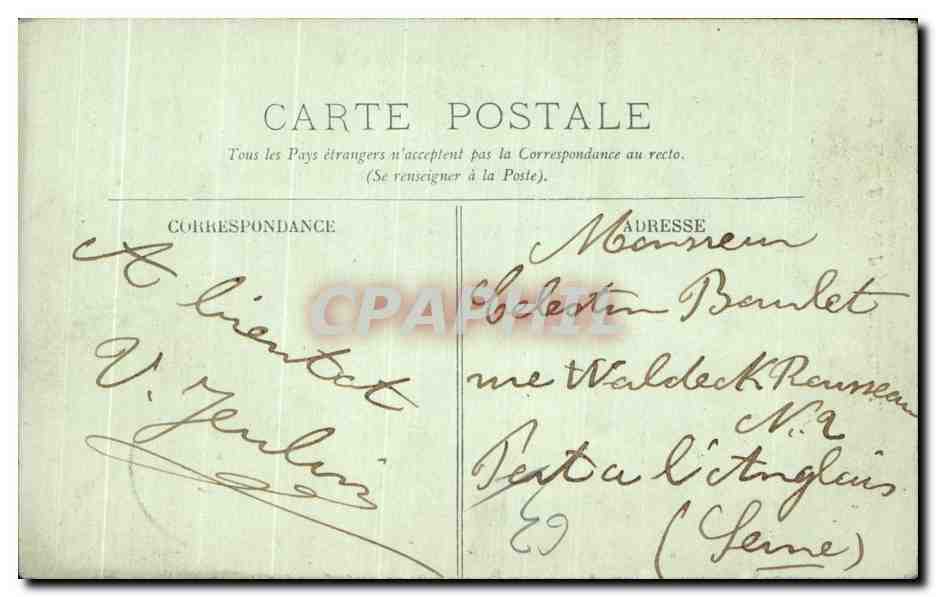 CARTE POSTALE
Tous les Pays étrangers n'acceptent pas la Correspondance au recto.
(Se renseigner à la Poste).
CORRESPONDANCE
A bientot
V. Jeulin
ADRESSE
Monsieur
Celestin Boulet
rue Waldeck Rousseau
N. 2
Port a l'Anglais
(Seine)
CPAPHIL